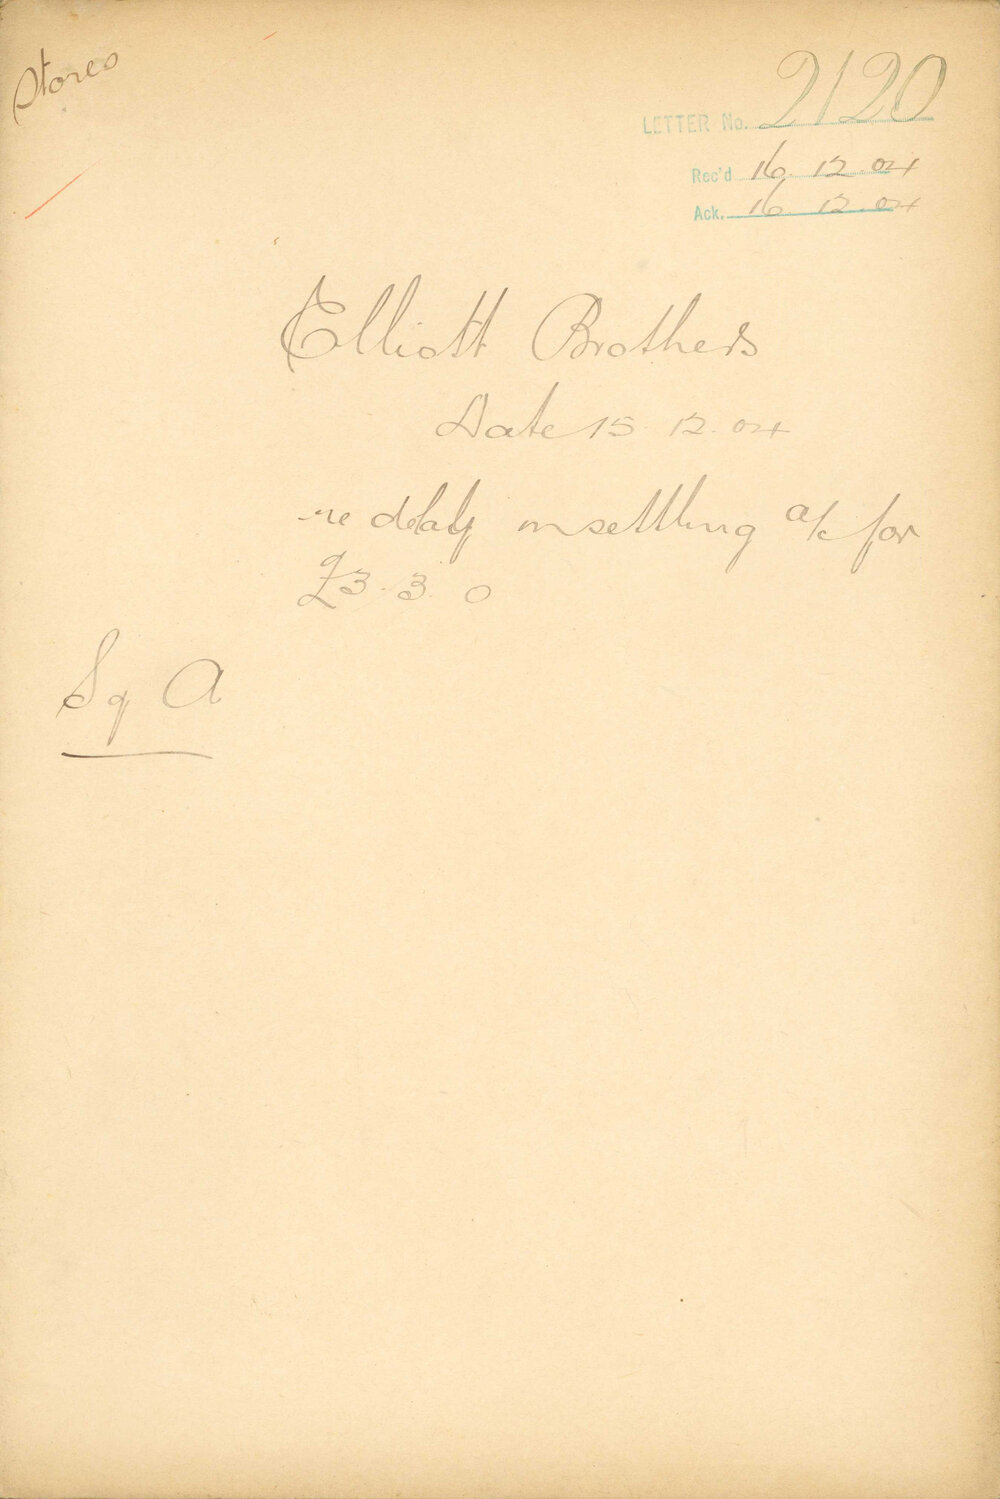 Stores
LETTER No. 2120
Rec'd 16.12.04
Ack. 16.12.04
Elliott Brothers
Date 15.12.04
re delay in settling a/c for
£3.3.0
Sq A